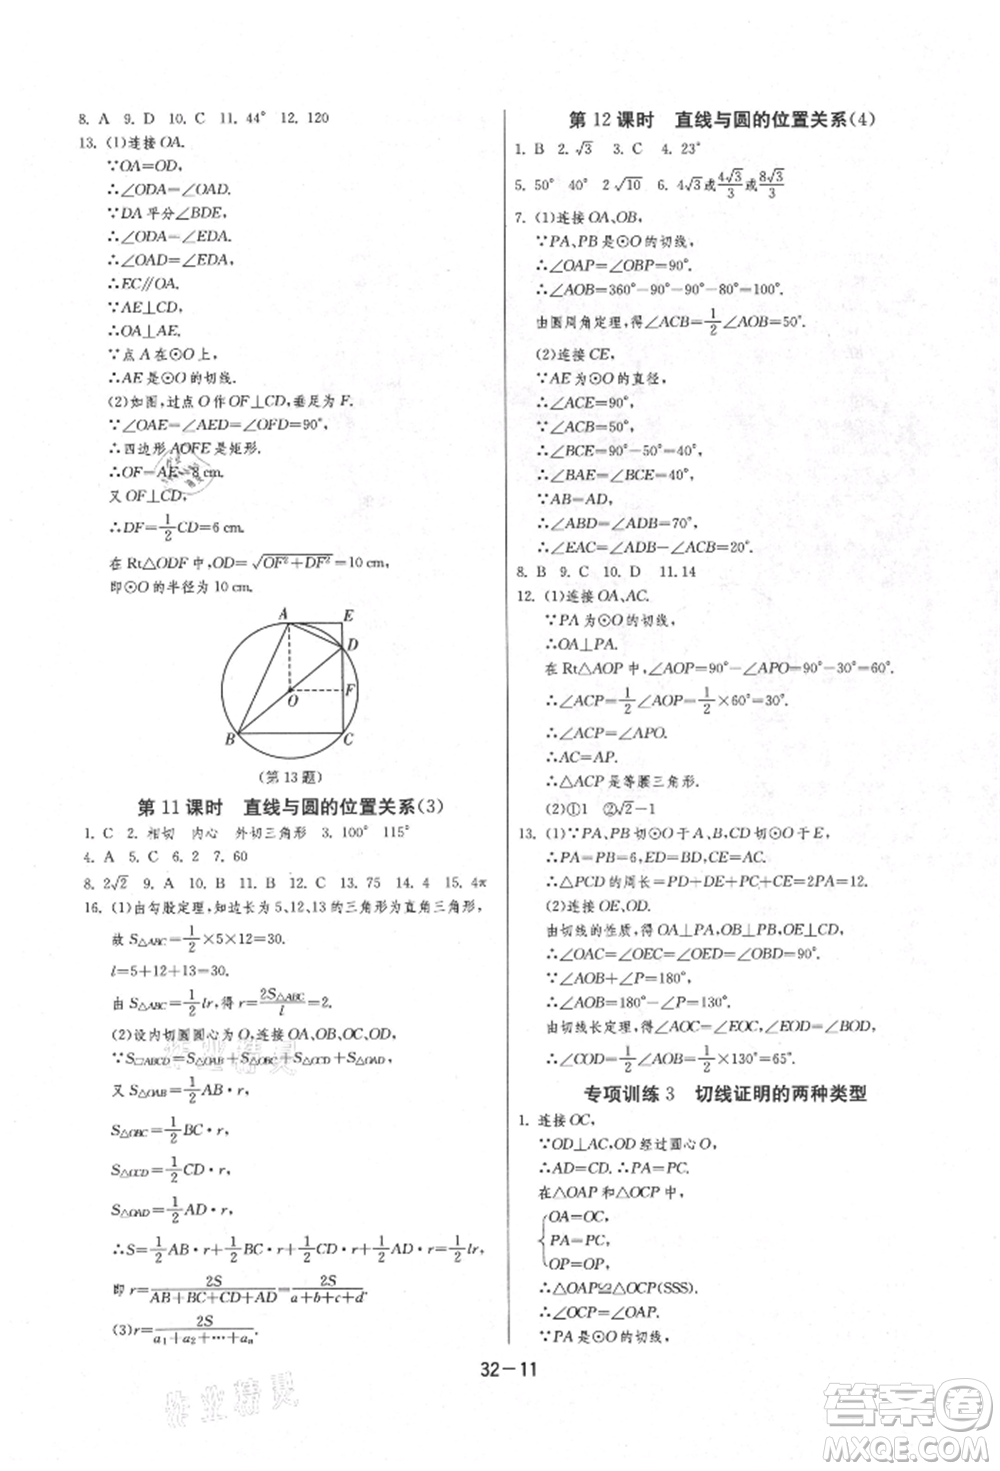 8. A 9. D 10. C 11. 44° 12. 120
13. (1)连接 OA.
∵OA=OD,
∴∠ODA=∠OAD.
∵DA 平分∠BDE,
∴∠ODA=∠EDA.
∴∠OAD=∠EDA.
∴EC∥OA.
∵AE⊥CD,
∴OA⊥AE.
∵点 A 在⊙O 上,
∴AE 是⊙O 的切线.
(2)如图,过点 O 作 OF⊥CD,垂足为 F.
∵∠OAE=∠AED=∠OFD=90°,
∴四边形 AOFE 是矩形.
∴OF=AE=8 cm.
又 OF⊥CD,
∴DF=1/2CD=6 cm.
在 Rt△ODF 中,OD=√(OF²+DF²)=10 cm,
即⊙O 的半径为 10 cm.
A E
D
O F
B C
(第 13 题)
第 11 课时 直线与圆的位置关系(3)
1. C 2. 相切 内心 外切三角形 3. 100° 115°
4. A 5. C 6. 2 7. 60
8. 2√2 9. A 10. B 11. B 12. C 13. 75 14. 4 15. 4π
16. (1)由勾股定理,知边长为 5、12、13 的三角形为直角三角形,
故 S△ABC=1/2×5×12=30.
l=5+12+13=30.
由 S△ABC=1/2lr,得 r=2S△ABC/l=2.
(2)设内切圆圆心为 O,连接 OA、OB、OC、OD,
∵S□ABCD=S△OAB+S△OBC+S△OCD+S△OAD,
又 S△OAB=1/2AB·r,
S△OBC=1/2BC·r,
S△OCD=1/2CD·r,
S△OAD=1/2AD·r,
∴S=1/2AB·r+1/2BC·r+1/2CD·r+1/2AD·r=1/2lr,
即 r=2S/(AB+BC+CD+AD)=2S/(a+b+c+d).
(3)r=2S/(a₁+a₂+…+aₙ).
第 12 课时 直线与圆的位置关系(4)
1. B 2. √3 3. C 4. 23°
5. 50° 40° 2√10 6. 4√3或4√3/3或8√3/3
7. (1)连接 OA、OB,
∵PA、PB 是⊙O 的切线,
∴∠OAP=∠OBP=90°.
∴∠AOB=360°-90°-90°-80°=100°.
由圆周角定理,得∠ACB=1/2∠AOB=50°.
(2)连接 CE,
∵AE 为⊙O 的直径,
∴∠ACE=90°.
∵∠ACB=50°,
∴∠BCE=90°-50°=40°.
∴∠BAE=∠BCE=40°.
∵AB=AD,
∴∠ABD=∠ADB=70°.
∴∠EAC=∠ADB-∠ACB=20°.
8. B 9. C 10. D 11. 14
12. (1)连接 OA、AC.
∵PA 为⊙O 的切线,
∴OA⊥PA.
在 Rt△AOP 中,∠AOP=90°-∠APO=90°-30°=60°.
∴∠ACP=1/2∠AOP=1/2×60°=30°.
∴∠ACP=∠APO.
∴AC=AP.
∴△ACP 是等腰三角形.
(2)①1 ②√2-1
13. (1)∵PA、PB 切⊙O 于 A、B,CD 切⊙O 于 E,
∴PA=PB=6,ED=AD,CE=BC.
∴△PCD 的周长=PD+DE+PC+CE=2PA=12.
(2)连接 OE、OD.
由切线的性质,得 OA⊥PA,OB⊥PB,OE⊥CD,
∴∠OAC=∠OEC=∠OED=∠OBD=90°.
∴∠AOB+∠P=180°.
∴∠AOB=180°-∠P=130°.
由切线长定理,得∠AOC=∠EOC,∠EOD=∠BOD,
∴∠COD=1/2∠AOB=1/2×130°=65°.
专项训练 3 切线证明的两种类型
1. 连接 OC,
∵OD⊥AC,OD 经过圆心 O,
∴AD=CD. ∴PA=PC.
在△OAP 和△OCP 中,
OA=OC,
PA=PC,
OP=OP,
∴△OAP≌△OCP(SSS).
∴∠OCP=∠OAP.
∵PA 是⊙O 的切线,
32-11
作业精灵
作业精灵
答案圈
MXQE.COM